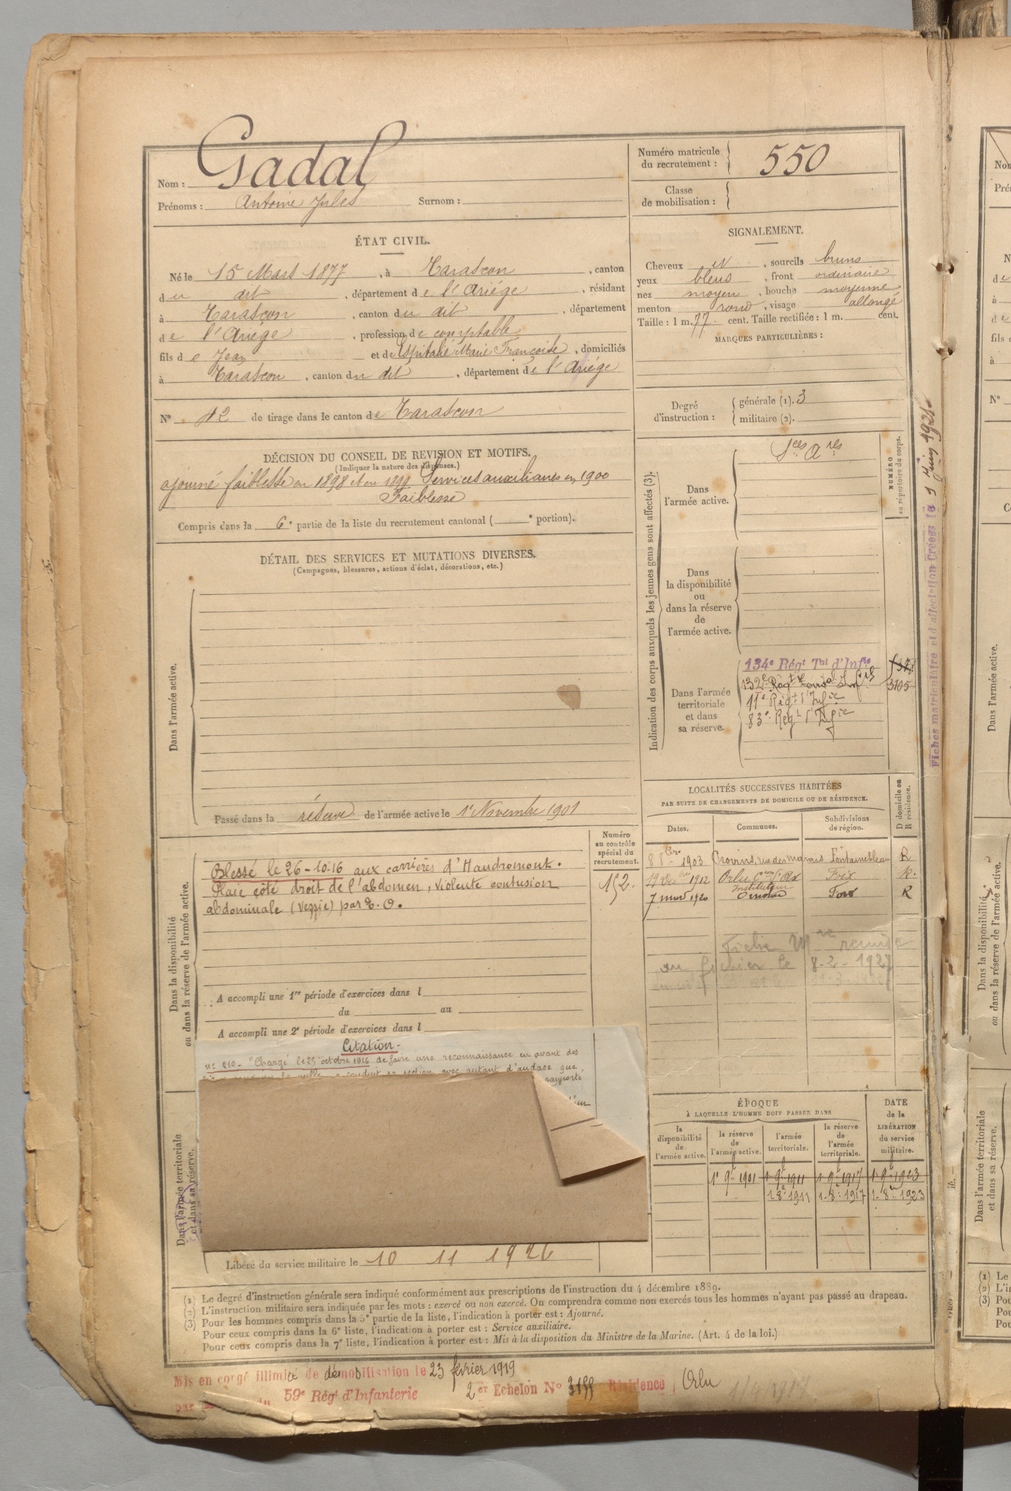 Nom : Gadal
Prénoms : Antoine Jules Surnom :
Numéro matricule du recrutement : 550
Classe de mobilisation :
ÉTAT CIVIL.
Né le 15 Mars 1877, à Tarascon, canton
du dit, département de l'Ariège, résidant
à Tarascon, canton du dit, département
de l'Ariège, profession de comptable
fils de Jean et de Marie Françoise, domiciliés
à Tarascon, canton du dit, département de l'Ariége
N° 12 de tirage dans le canton de Tarascon
SIGNALEMENT.
Cheveux et, sourcils bruns
yeux bleus, front ordinaire
nez moyen, bouche moyenne
menton rond, visage allongé
Taille : 1 m. 77 cent. Taille rectifiée : 1 m. cent.
MARQUES PARTICULIÈRES :
Degré d'instruction : générale (1). 3
militaire (2).
DÉCISION DU CONSEIL DE REVISION ET MOTIFS.
(Indiquer la nature des dispenses.)
ajourné faiblesse en 1898 et en 1899 Services auxiliaires en 1900
Faiblesse
Compris dans la 6e partie de la liste du recrutement cantonal ( e portion).
DÉTAIL DES SERVICES ET MUTATIONS DIVERSES.
(Campagnes, blessures, actions d'éclat, décorations, etc.)
Dans l'armée active.
Passé dans la réserve de l'armée active le 1er Novembre 1901
Indication des corps auxquels les jeunes gens sont affectés (3).
NUMÉRO au répertoire du corps.
Dans l'armée active.
Dans la disponibilité ou dans la réserve de l'armée active.
Dans l'armée territoriale et dans sa réserve.
134e Régt Tal d'Infie
132e Régt
11e Régt d'Infie
83e Régt d'Infie
3105
Fiches matriculaire et d'affectation Créées le
LOCALITÉS SUCCESSIVES HABITÉES
PAR SUITE DE CHANGEMENTS DE DOMICILE OU DE RÉSIDENCE.
Dates. Communes. Subdivisions de région. D domicile ou R résidence.
1903 Provins Fontainebleau R
1912 Orlu Foix R.
Instituteur
7 mars 1920 Foix R
Fiche Mre remise
au fichier le 8-2-1927
Dans la disponibilité ou dans la réserve de l'armée active.
Numéro au contrôle spécial du recrutement.
152
Blessé le 26-10-16 aux carrières d'Haudromont.
Plaie côté droit de l'abdomen, violente contusion
abdominale (Vessie) par E. O.
A accompli une 1re période d'exercices dans l
du au
A accompli une 2e période d'exercices dans l
Citation -
"Chargé le 25 octobre 1916 de faire une reconnaissance en avant des
section avec autant d'audace que
Dans l'armée territoriale et dans sa réserve.
Libéré du service militaire le 10 11 1926
ÉPOQUE
À LAQUELLE L'HOMME DOIT PASSER DANS
la disponibilité de l'armée active. la réserve de l'armée active. l'armée territoriale. la réserve de l'armée territoriale.
DATE de la LIBÉRATION du service militaire.
1-9-1901 1-9-1911 1-9-1917 1-9-1923
1-8-1911 1-8-1917 1-8-1923
(1) Le degré d'instruction générale sera indiqué conformément aux prescriptions de l'instruction du 4 décembre 1889.
(2) L'instruction militaire sera indiquée par les mots : exercé ou non exercé. On comprendra comme non exercés tous les hommes n'ayant pas passé au drapeau.
(3) Pour les hommes compris dans la 5e partie de la liste, l'indication à porter est : Ajourné.
Pour ceux compris dans la 6e liste, l'indication à porter est : Service auxiliaire.
Pour ceux compris dans la 7e liste, l'indication à porter est : Mis à la disposition du Ministre de la Marine. (Art. 4 de la loi.)
Mis en congé illimité de démobilisation le 23 février 1919
59e Régt d'Infanterie 2er Echelon N° Résidence Orlu